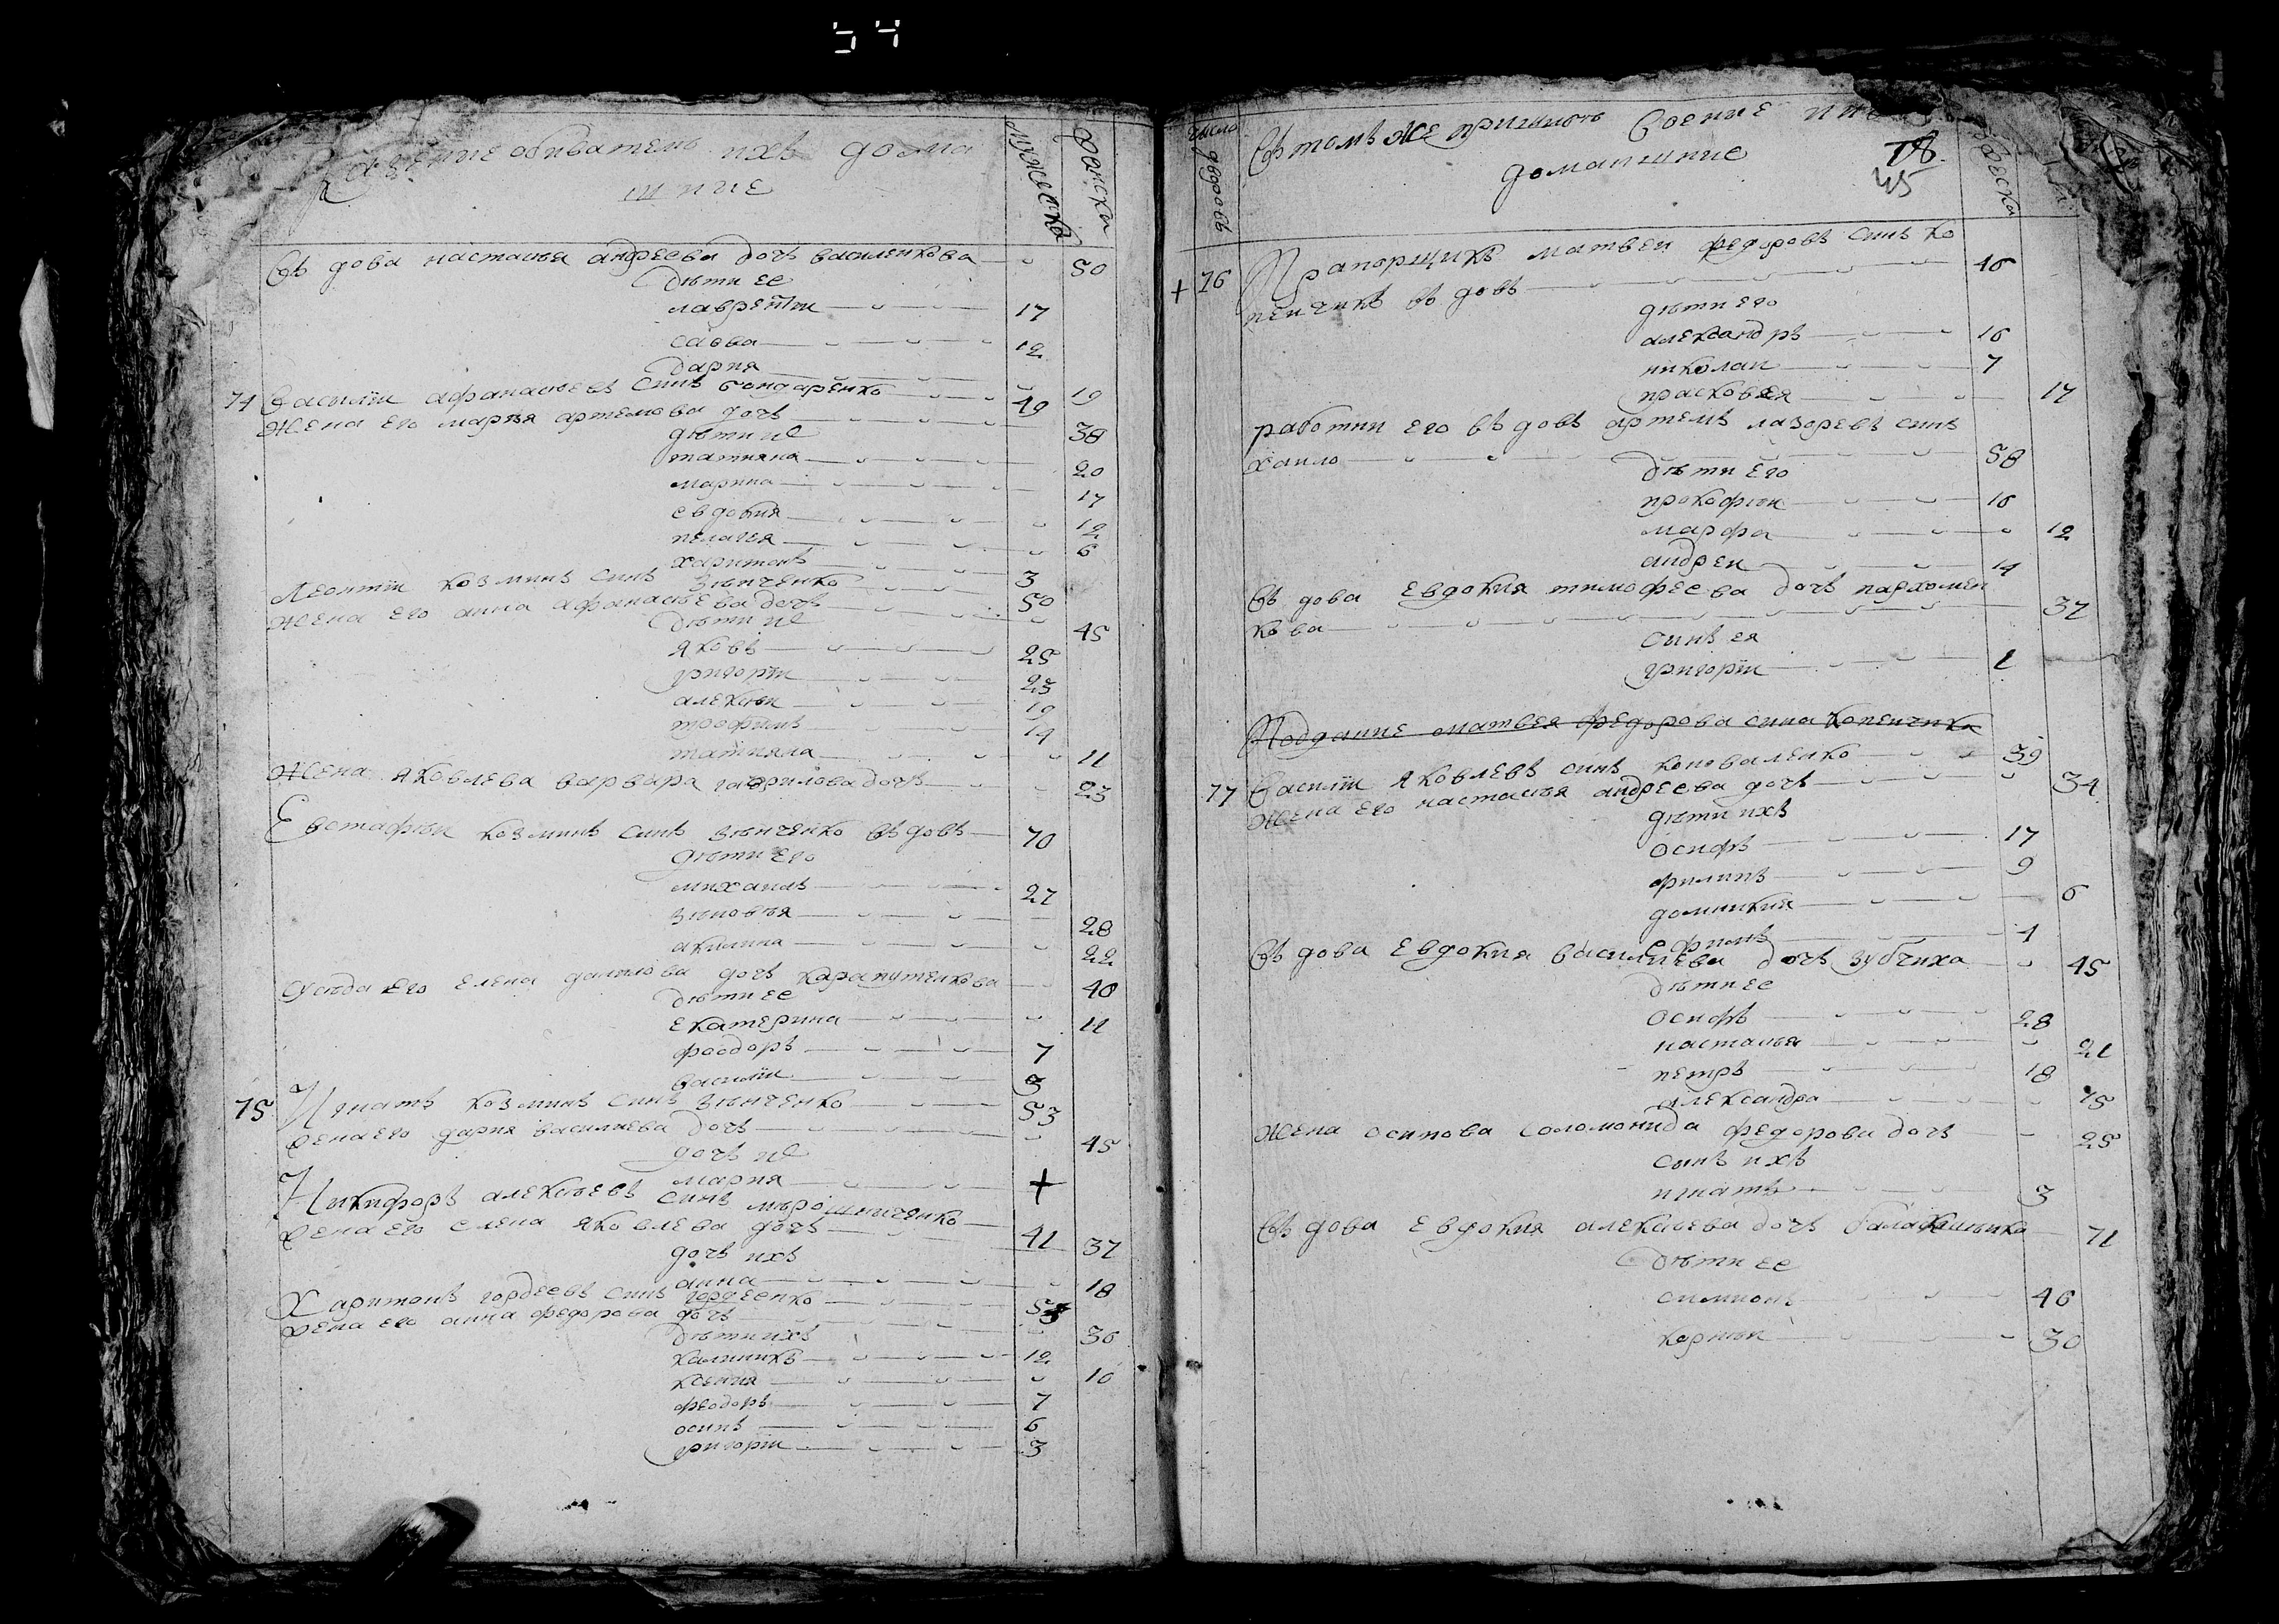 54
Казенние обиватель ихъ дома
шние
мужеска
женска
Въ дова настасья андреева дочъ василенкова 50
Дѣти ее
лаврентіи 17
савва 12
дария 19
74 Василіи афанасьевъ синъ бондаренко 49
Жена его мария артемова дочъ 38
дѣти ис
татияна 20
марина 17
евдокия 12
пелагея 6
харитонъ 3
Леонтіи козминъ синъ зѣнченко 50
Жена его анна афанасьева дочъ 45
Дѣти ис
яковъ 25
григоріи 23
алексѣи 19
трофимъ 14
татияна 11
Жена яковлева варвара гаврилова дочъ 23
Евстафѣи козминъ синъ зѣнченко въ довъ 70
дѣти его
михаилъ 27
зѣновъя 28
акилина 22
его елена данилова дочъ карапутенкова 40
дѣти ее
екатерина 11
феодоръ 7
василіи 3
75 Игнатъ козминъ синъ зѣнченко 53
Жена его дария василиева дочъ 45
дочъ ис
мария +
Никифоръ алексѣевъ синъ мѣрошниченко 41
Жена его елена яковлева дочъ 37
дочъ ихъ
анна 18
Харитонъ гордеевъ синъ гордеенко
Жена его анна федорова дочъ 36
Дѣти ихъ
калиникъ 12
ксения 10
феодоръ 7
осипъ 6
григоріи 3
число дворовъ
Въ томъ же
домашние
78
45
+ 76 Прапорщикъ матвеи федоровъ синъ ко
пенчикъ въ довъ 46
дѣти его
александръ 16
николаи 7
прасковея 17
работни его въ довъ артемъ лазоревъ синъ
хаило 58
Дѣти его
прокофѣи 16
марфа 12
андреи 14
Въ дова евдокия тимофеева дочъ пархомен
кова 37
синъ ея
григоріи 1
Подание матвея федорова сина копенчика
77 Василіи яковлевъ синъ коноваленко 39
Жена его настасъя андреева дочъ 34
дѣти ихъ
осифъ 17
филипъ 9
домникия 6
ефимъ 1
Въ дова евдокия василиева дочъ зубчиха 45
дѣти ее
осифъ 28
настасья 21
петръ 18
александра 15
Жена осипова соломонида федорова дочъ 25
синъ ихъ
игнатъ 3
Въ дова евдокия алексѣева дочъ 71
Дѣти ее
симионъ 46
корнѣи 30